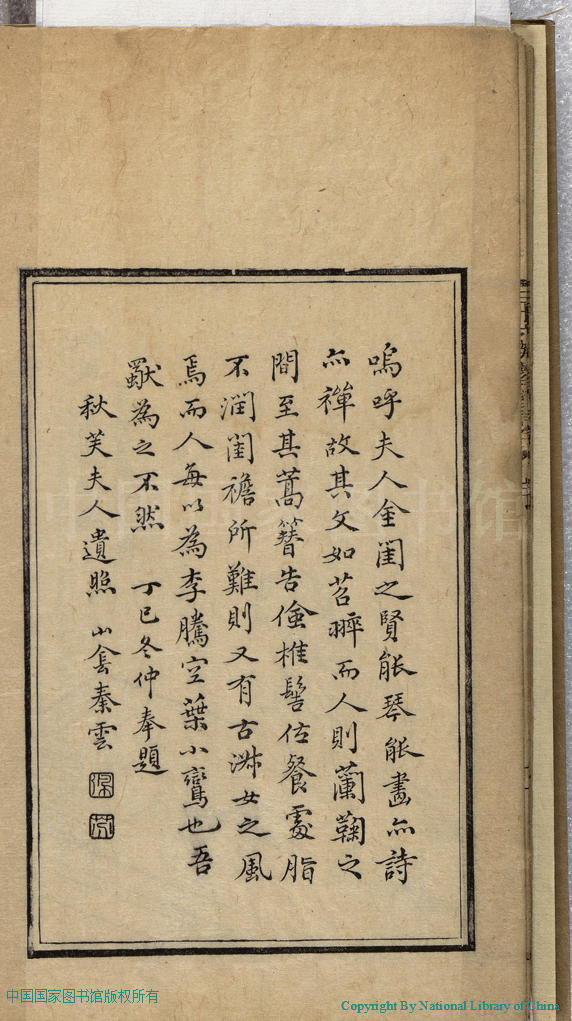 嗚呼夫人金閨之賢能琴能畫亦詩
亦禪故其文如苕翠而人則蘭鞠之
間至其蒿簪告儉椎髻佐餐處脂
不潤閨襜所難則又有古淑女之風
焉而人每以為李騰空葉小鸞也吾
猒為之不然 丁巳冬仲奉題
秋芙夫人遺照 山龕秦雲
中国国家图书馆版权所有
Copyright By National Library of China